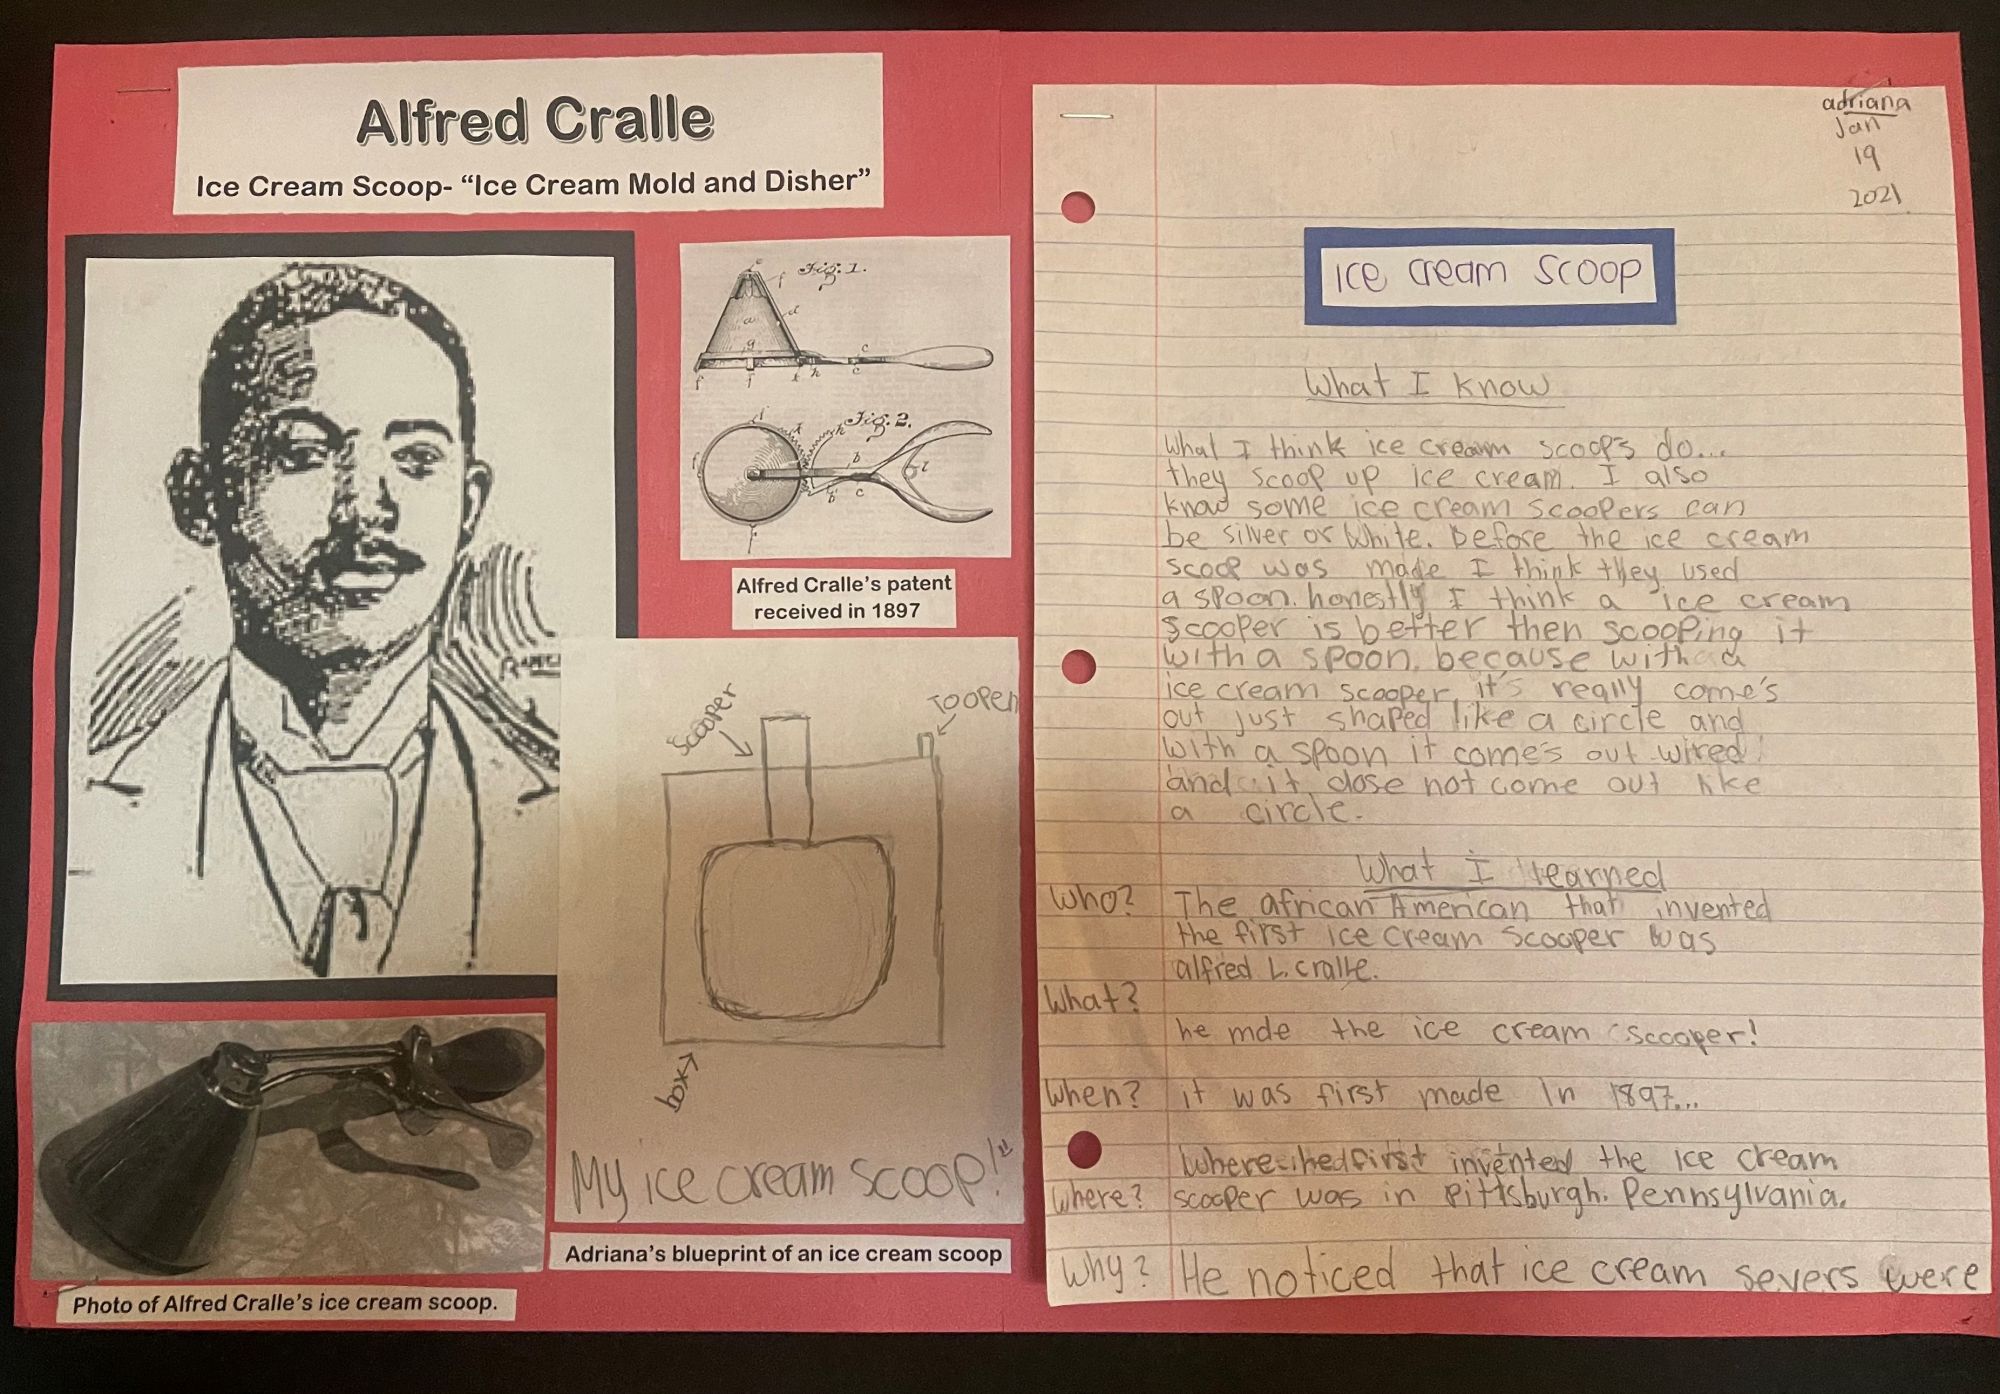 Alfred Cralle
Ice Cream Scoop- “Ice Cream Mold and Disher”
Fig. 1.
Fig. 2.
Alfred Cralle’s patent
received in 1897
scooper
To open
box
My ice cream scoop!"
Adriana’s blueprint of an ice cream scoop
Photo of Alfred Cralle’s ice cream scoop.
adriana
Jan
19
2021
ice cream scoop
What I know
What I think ice cream scoops do...
they scoop up ice cream. I also
know some ice cream scoopers can
be silver or White. Before the ice cream
scoop was made I think they used
a spoon. honestly I think a ice cream
scooper is better then scooping it
with a spoon. because with a
ice cream scooper, it's really come's
out just shaped like a circle and
with a spoon it come's out wired
and it dose not come out like
a circle.
What I learned
Who? The african American that invented
the first ice cream scooper was
alfred L. cralle.
What?
he mde the ice cream scooper!
When? it was first made in 1897...
Where he first invented the ice cream
Where? scooper was in Pittsburgh. Pennsylvania.
Why? He noticed that ice cream severs were